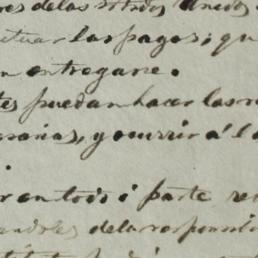 res de los Estados Unidos
tuar los pagos, qu
n entregarse.
tes puedan hacer las r
esarias, y ocurrir á l
r en todo ó parte re
andoles de la responsabili